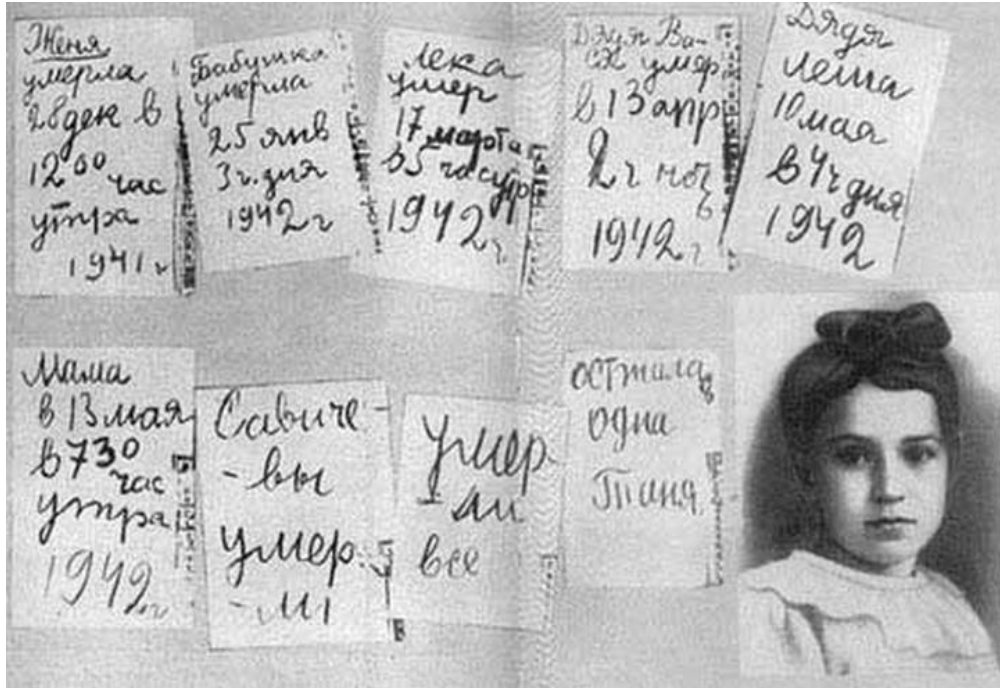 Женя
умерла
28 дек в
12 00 час
утра
1941 г
Бабушка
умерла
25 янв
3 ч. дня
1942 г
Лека
умер
17 марта
в 5 часутр
1942 г.
Дядя Ва-
ся умер
в 13 апр
2 ч ноч
1942 г
Дядя
Леша
10 мая
в 4 ч дня
1942
Мама
в 13 мая
в 7 30
час
утра
1942 г
Савиче-
-вы
умер-
-ли
умер-
-ли
все
осталась
одна
Таня